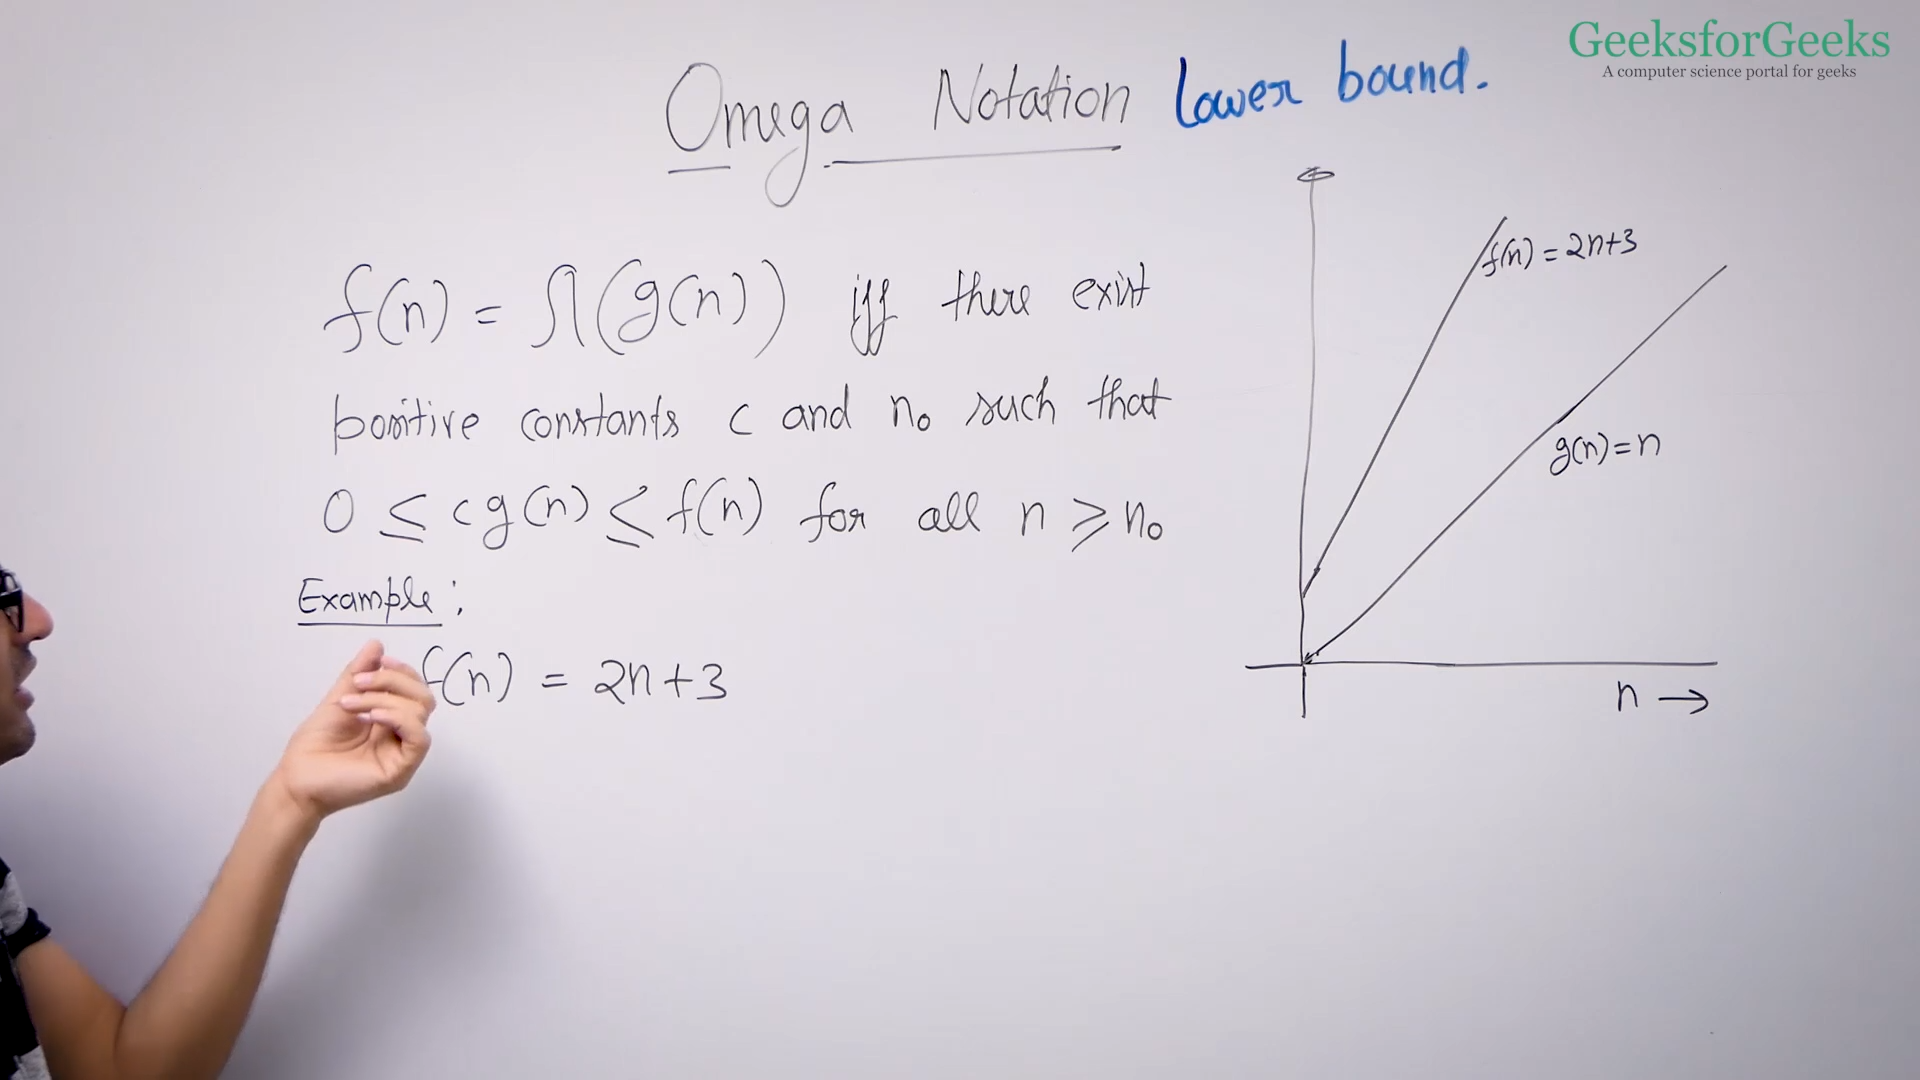 GeeksforGeeks
A computer science portal for geeks
Omega Notation Lower bound.
f(n) = Ω(g(n)) iff there exist
positive constants c and n₀ such that
0 ≤ cg(n) ≤ f(n) for all n ≥ n₀
Example:
f(n) = 2n+3
f(n) = 2n+3
g(n) = n
n →